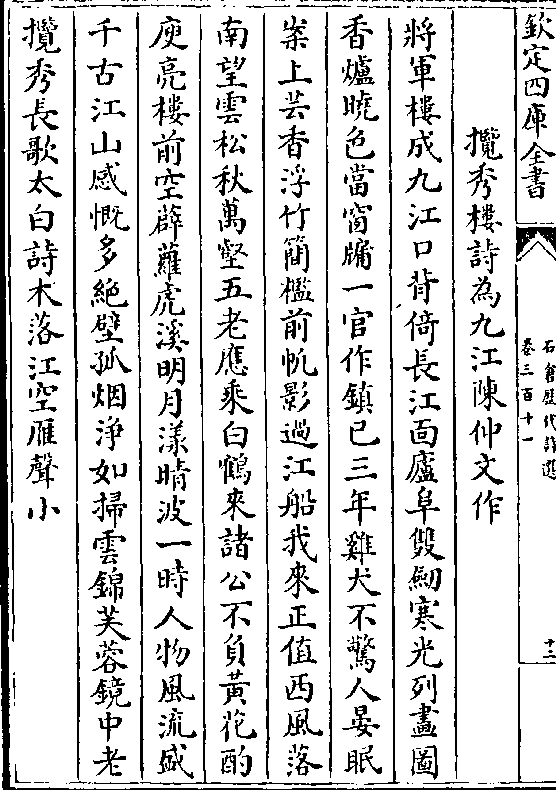 欽定四庫全書
石倉歷代詩選
卷三百十一
十二
攬秀樓詩為九江陳仲文作
將軍樓成九江口背倚長江面廬阜雙劒寒光列畫圖
香爐曉色當窗牖一官作鎮已三年雞犬不驚人晏眠
案上芸香浮竹簡檻前帆影過江船我來正值西風落
南望雲松秋萬壑五老應乘白鶴來諸公不負黃花酌
庾亮樓前空薜蘿虎溪明月漾晴波一時人物風流盛
千古江山感慨多絶壁孤烟淨如掃雲錦芙蓉鏡中老
攬秀長歌太白詩木落江空雁聲小